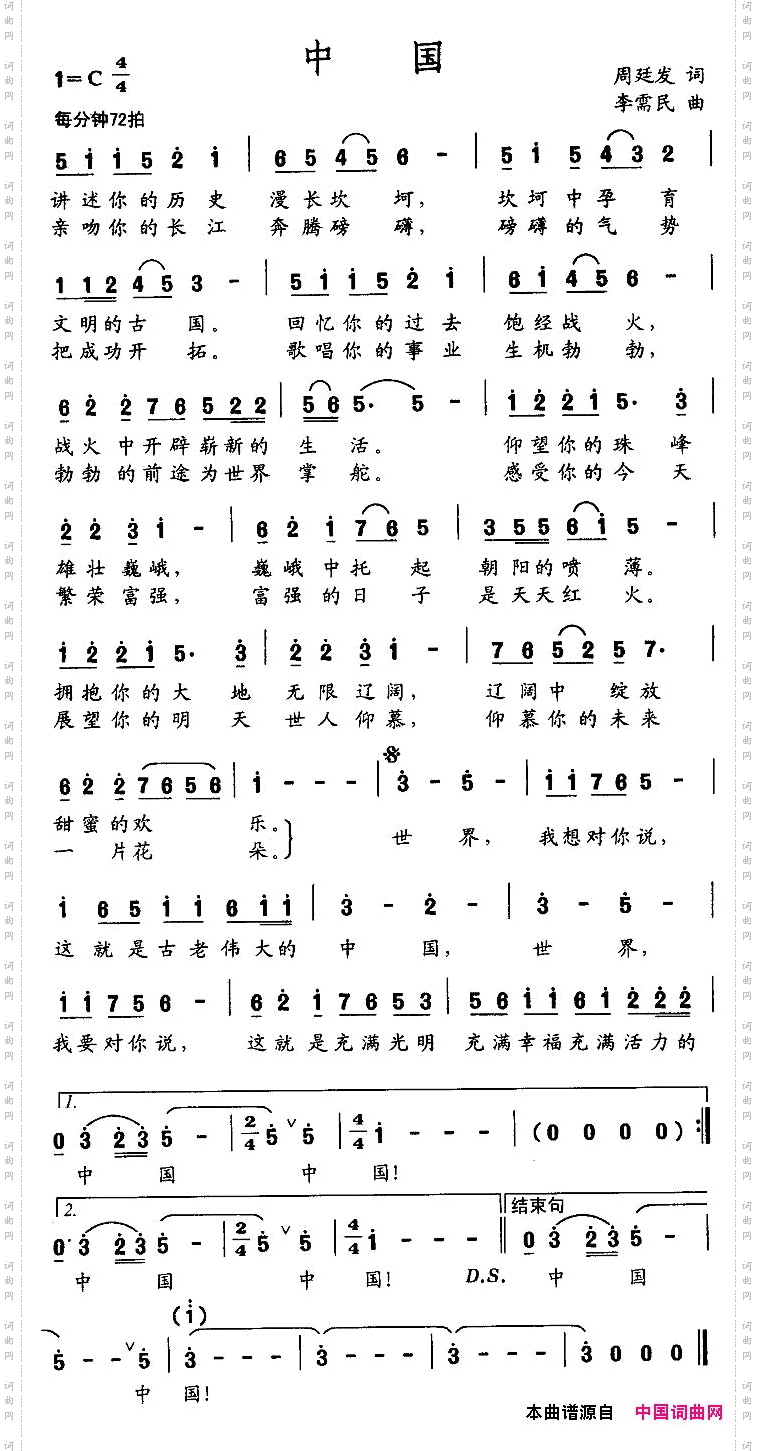 中国
1=C 4/4
周廷发 词
李需民 曲
每分钟72拍
5 1 1 5 2 1 | 6 5 4 5 6 - | 5 1 5 4 3 2 |
讲述你的历史 漫长坎坷， 坎坷中孕育
亲吻你的长江 奔腾磅礴， 磅礴的气势
1 1 2 4 5 3 - | 5 1 1 5 2 1 | 6 1 4 5 6 - |
文明的古国。 回忆你的过去 饱经战火，
把成功开拓。 歌唱你的事业 生机勃勃，
6 2 2 7 6 5 2 2 | 5 6 5· 5 - | 1 2 2 1 5· 3 |
战火中开辟崭新的生活。 仰望你的珠峰
勃勃的前途为世界掌舵。 感受你的今天
2 2 3 1 - | 6 2 1 7 6 5 | 3 5 5 6 1 5 - |
雄壮巍峨， 巍峨中托起 朝阳的喷薄。
繁荣富强， 富强的日子 是天天红火。
1 2 2 1 5· 3 | 2 2 3 1 - | 7 6 5 2 5 7· |
拥抱你的大地 无限辽阔， 辽阔中绽放
展望你的明天 世人仰慕， 仰慕你的未来
6 2 2 7 6 5 6 | 1 - - - | 3 - 5 - | 1 1 7 6 5 - |
甜蜜的欢乐。 世界， 我想对你说，
一片花朵。
1 6 5 1 1 6 1 1 | 3 - 2 - | 3 - 5 - |
这就是古老伟大的中国， 世界，
1 1 7 5 6 - | 6 2 1 7 6 5 3 | 5 6 1 1 6 1 2 2 |
我要对你说， 这就是充满光明 充满幸福充满活力的
1.
0 3 2 3 5 - | 2/4 5 ∨ 5 | 4/4 1 - - - | (0 0 0 0) :||
中国 中国！
2. 结束句
0 3 2 3 5 - | 2/4 5 ∨ 5 | 4/4 1 - - - || 0 3 2 3 5 - |
中国 中国！ D.S. 中国
(1)
5 - - ∨ 5 | 3 - - - | 3 - - - | 3 - - - | 3 0 0 0 ||
中国！
本曲谱源自 中国词曲网